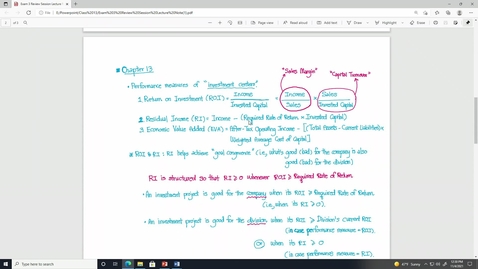 Page view
Read aloud
Add text
Draw
Highlight
Erase
* Chapter 13
• Performance measures of "investment centers"
"Sales Margin"
"Capital Turnover"
1. Return on Investment (ROI) = Income / Invested Capital = Income / Sales × Sales / Invested Capital
2. Residual Income (RI) = Income - (Required Rate of Return × Invested Capital)
3. Economic Value Added (EVA) = After-Tax Operating Income - [(Total Assets - Current Liabilities) ×
Weighted Average Cost of Capital]
* ROI & RI : RI helps achieve "goal congruence" (i.e., what's good (bad) for the company is also
good (bad) for the division).
RI is structured so that RI ≥ 0 whenever ROI ≥ Required Rate of Return
• An investment project is good for the company when its ROI ≥ Required Rate of Return.
(i.e., when its RI ≥ 0).
• An investment project is good for the division when its ROI ≥ Division's Current ROI
(in case performance measure = ROI).
OR when its RI ≥ 0
(in case performance measure = RI).
Type here to search